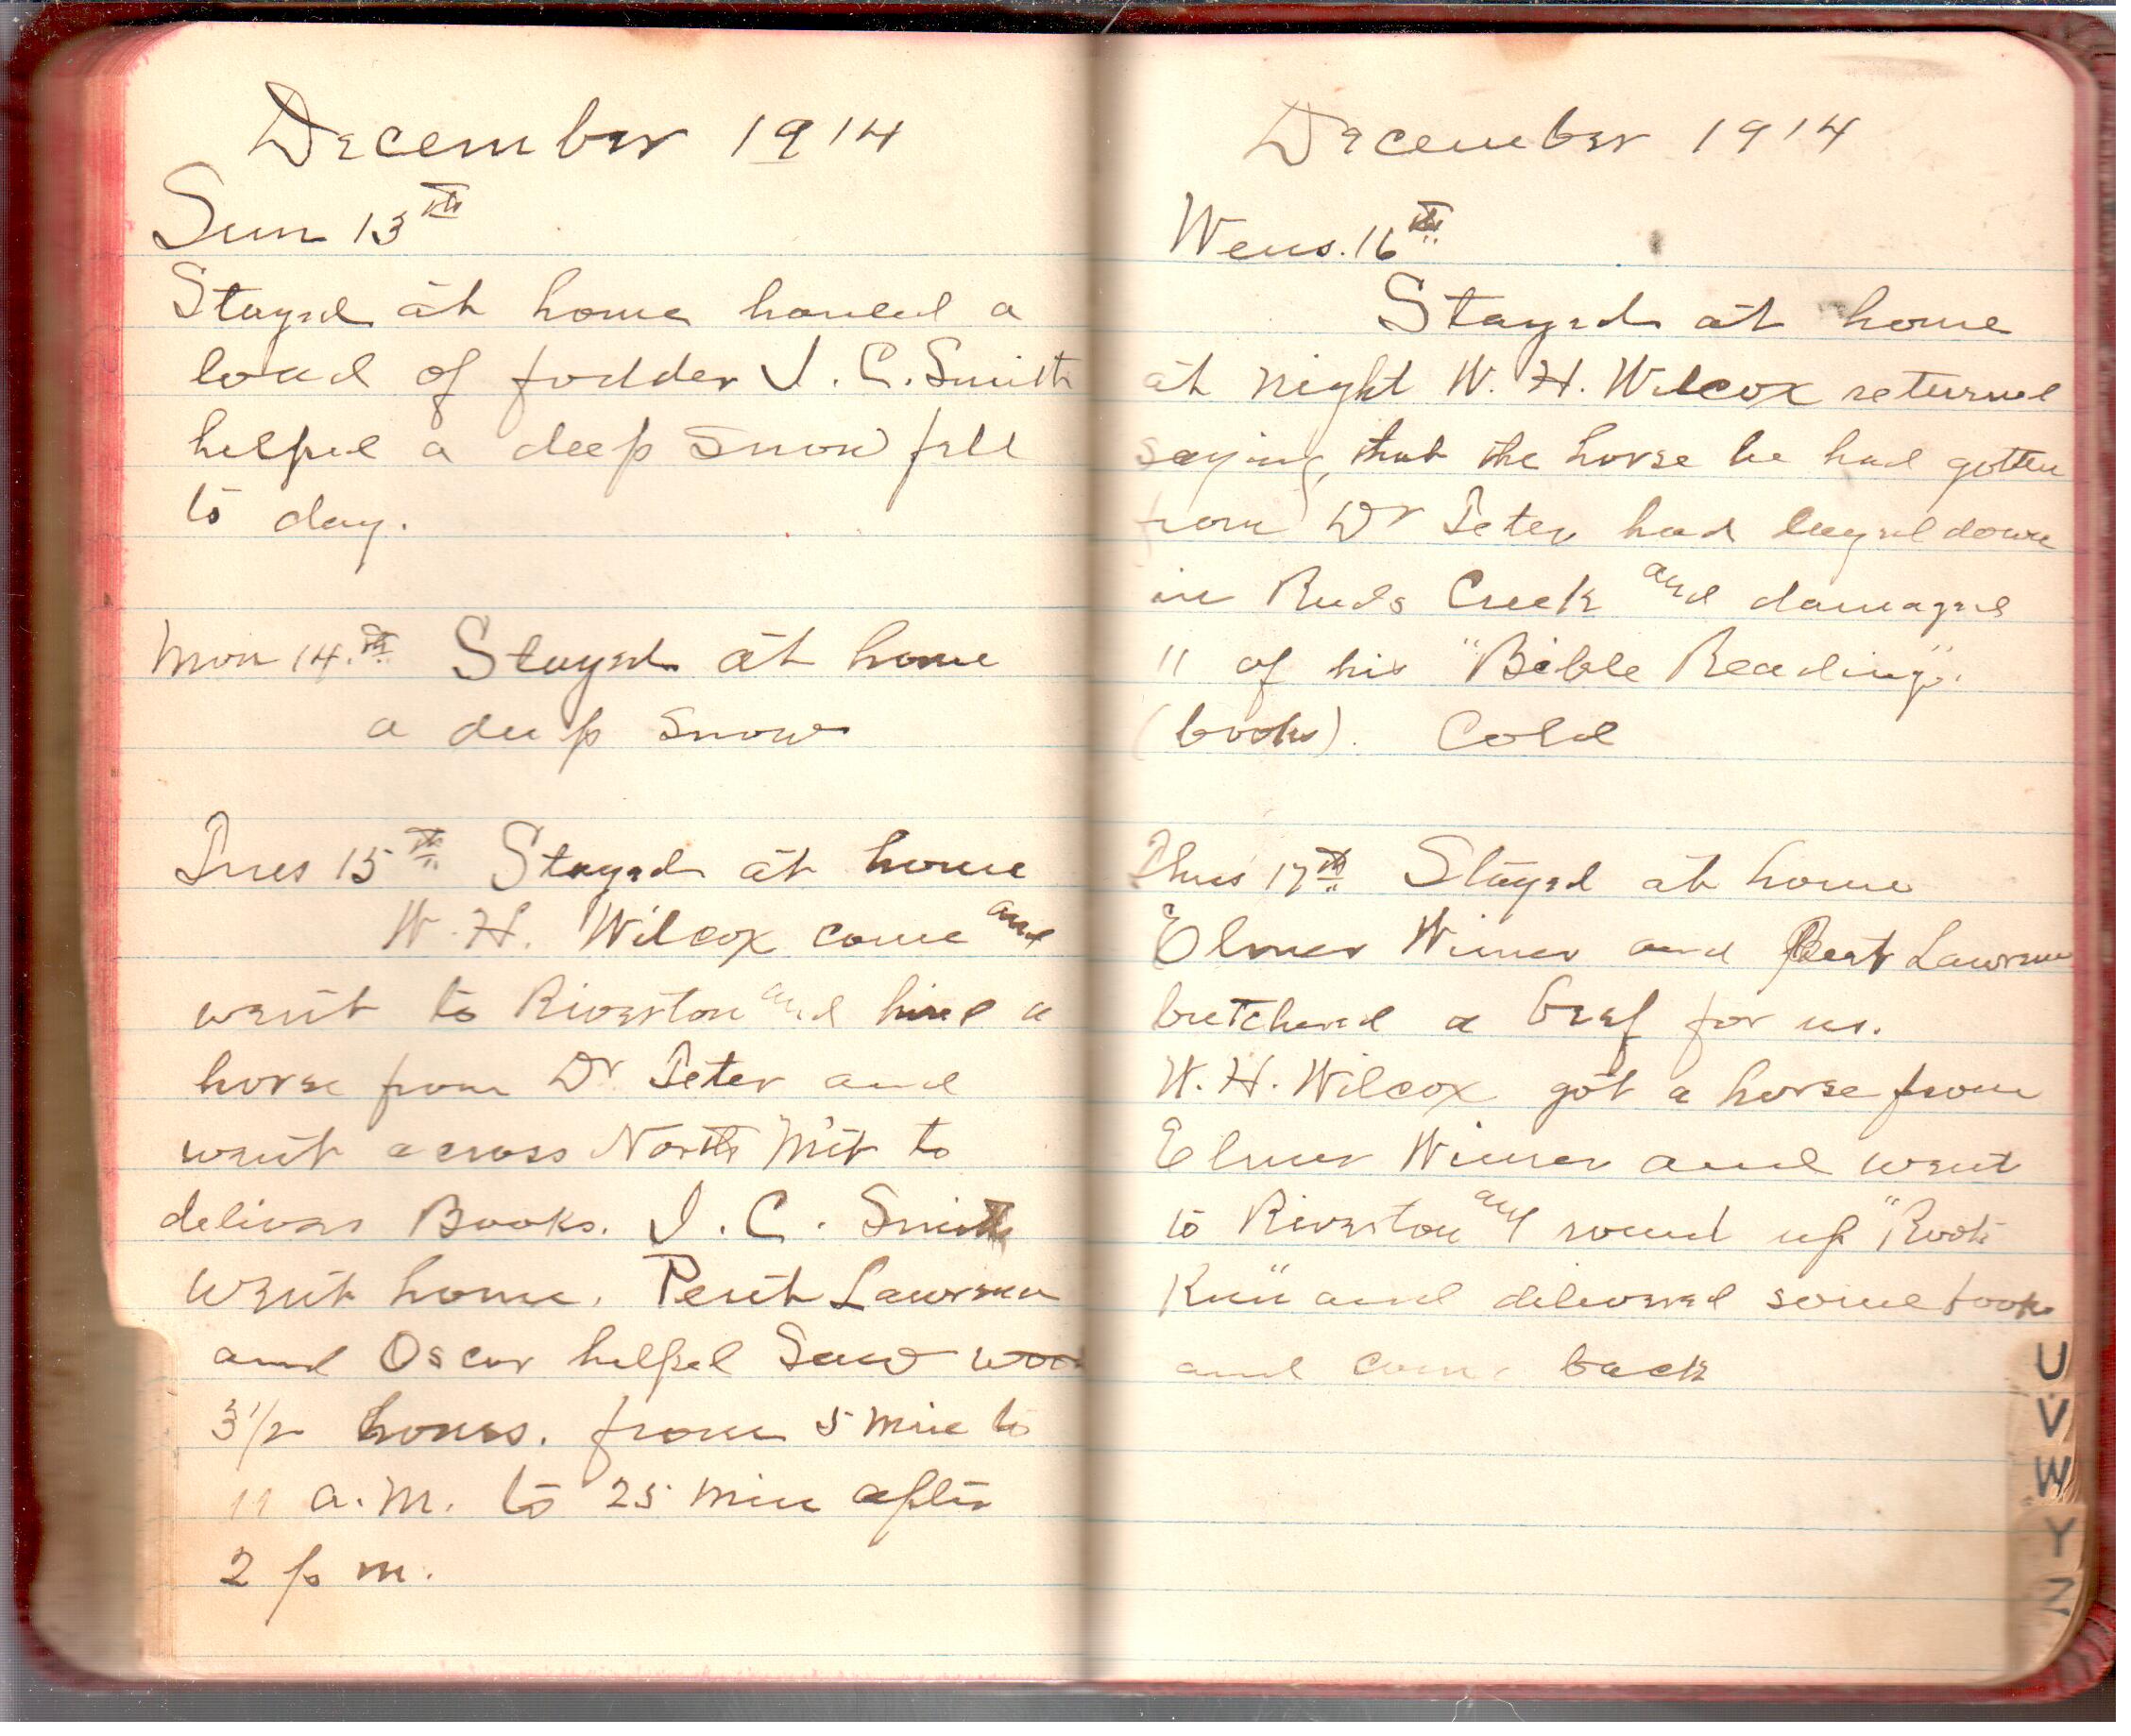 December 1914
Sun 13th
Stayed at home hauled a
load of fodder J. C. Smith
helped a deep snow fell
to day.
Mon 14.th Stayed at home
a deep snow
Tues 15th Stayed at home
W. H. Wilcox come and
went to Riverton and hired a
horse from Dr Teter and
went across North Mt to
deliver Books. J. C. Smith
went home. Pent Lawrence
and Oscar helped Saw wood
3 1/2 hours. from 5 min to
11 a.m. to 25 min after
2 p m.
December 1914
Wens. 16th
Stayed at home
at night W. H. Wilcox returned
saying, that the horse he had gotten
from Dr Teter had layed down
in Reeds Creek and damaged
11 of his "Bible Reading".
(books). Cold
Thurs 17th Stayed at home
Elmer Wimer and Lawrence
butchered a beef for us.
W. H. Wilcox got a horse from
Elmer Wimer and went
to Riverton and round up "Root
Run" and delivered some books
and come back
U
V
W
Y
Z